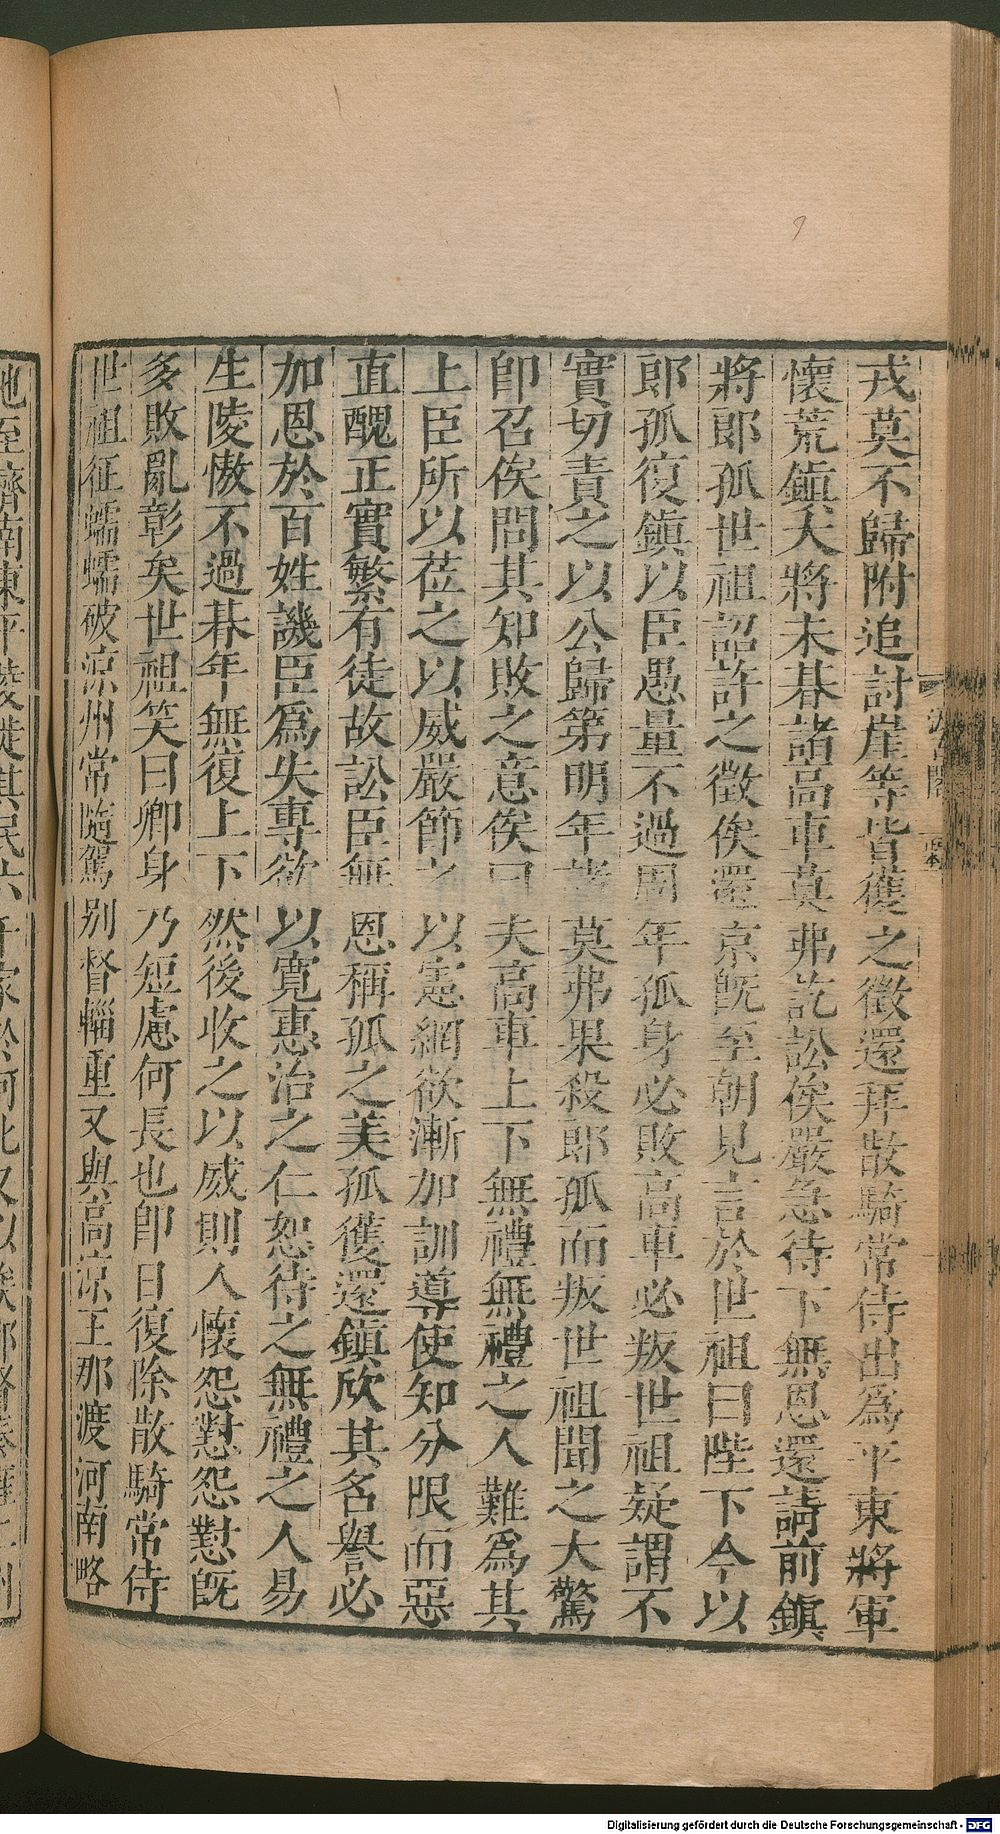 戎莫不歸附追討崖等皆獲之徵還拜散騎常侍出爲平東將軍
懷荒鎮大將未朞諸高車莫弗訟訟俟嚴急待下無恩還請前鎮
將郎孤世祖詔許之徵俟還京旣至朝見言於世祖曰陛下今以
郎孤復鎮以臣愚量不過周年孤身必敗高車必叛世祖疑謂不
實切責之以公歸第明年諸莫弗果殺郎孤而叛世祖聞之大驚
卽召俟問其知敗之意俟曰夫高車上下無禮無禮之人難爲其
上臣所以莅之以威嚴節之以憲網欲漸加訓導使知分限而惡
直醜正實繁有徒故訟臣無恩稱孤之美孤獲還鎮欣其名譽必
加恩於百姓譏臣爲失專欲以寬惠治之仁恕待之無禮之人易
生陵慠不過朞年無復上下然後收之以威則人懷怨懟怨懟旣
多敗亂彰矣世祖笑曰卿身乃短慮何長也卽日復除散騎常侍
世祖征蠕蠕破涼州常隨駕別督輜重又與高涼王那渡河南略
地至濟南東平陵徙其民六千家於河北又以俟都督秦雍二州
汲古閣
Digitalisierung gefördert durch die Deutsche Forschungsgemeinschaft - DFG